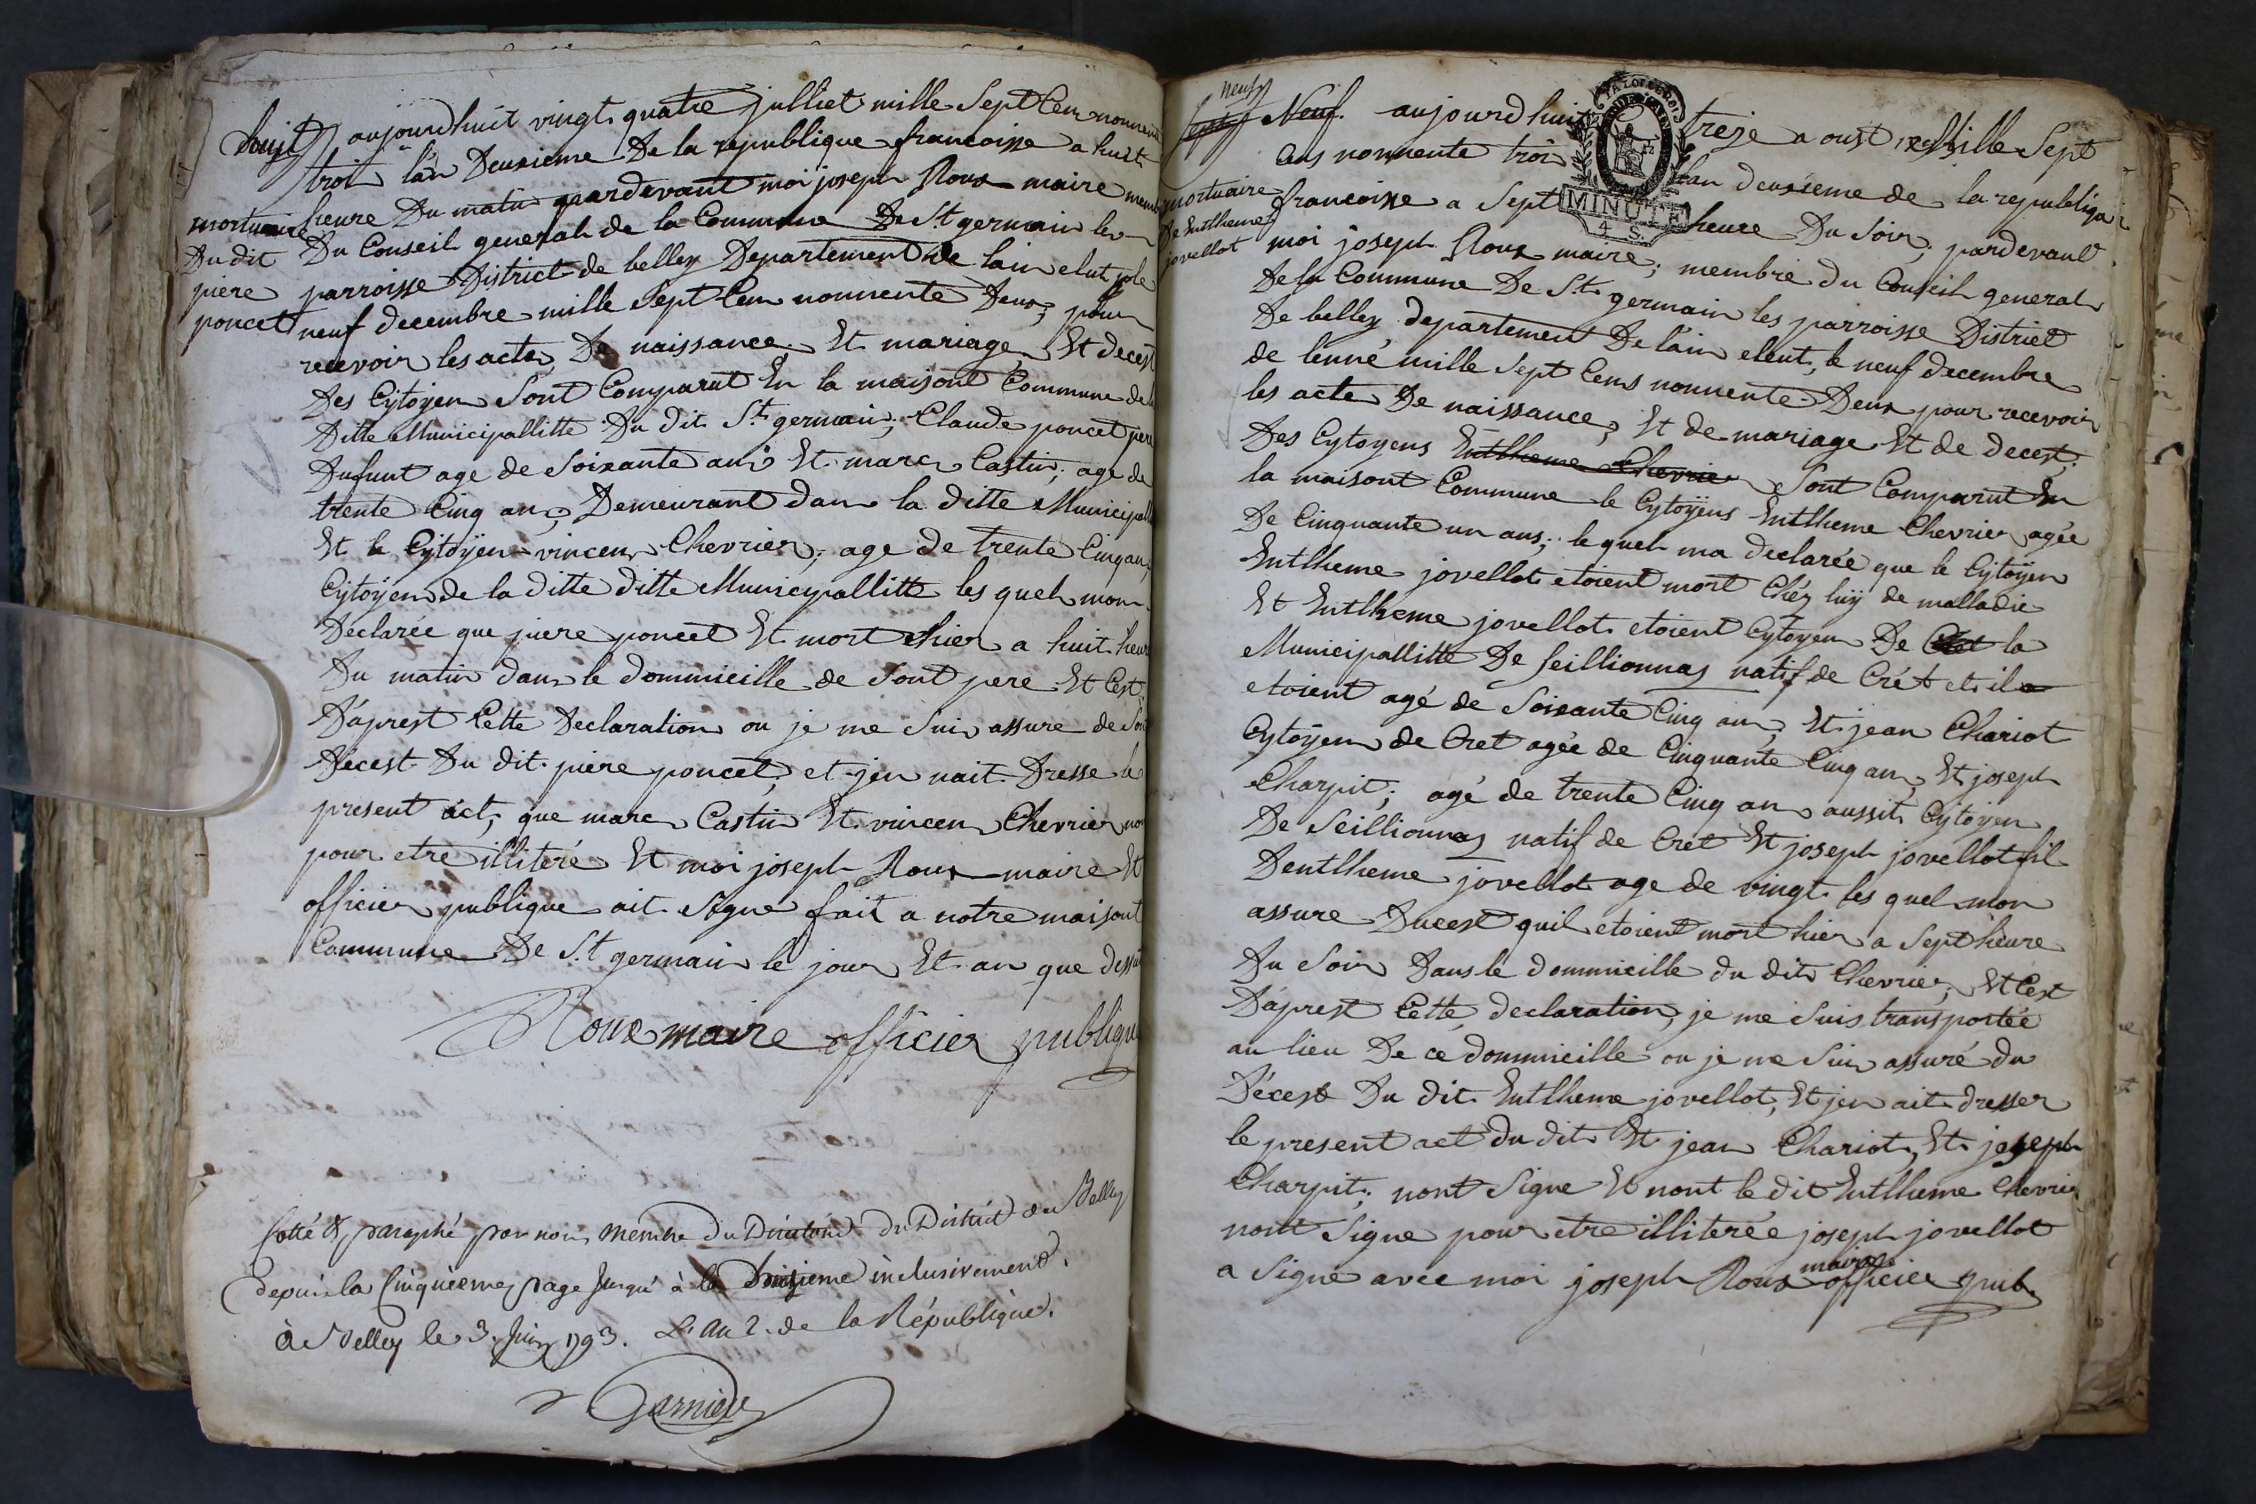 huit aujourdhuit vingt quatre julliet mille Sept Cen nonnente
troi lan Deuxieme De la republique francoisse a huit
mortuaire heure Du matin pardevant moi joseph Roux maire membre
Du dit Du Conseil general de la Commune De St germain les
piere parroisse District de belley Departement de lain elut
poncet neuf decembre mille Sept Cen nonnente Deux, pour
recevoir les acte De naissance Et mariage Et decest
Des Cytoyen Sont Comparut En la maisont Commune de la
Ditte Municipallitte Du dit St germain, Claude poncet pere
Dufunt age de Soixante ans Et marc Castin, age de
trente Cinq ans, Demeurant dans la ditte Municipall
Et le Cytoyen vincen Chevrier, age de trente Cinq ans,
Cytoyen de la ditte ditte Municypallitte les quels mon
Declarée que piere poncet Et mort hier a huit heure
Du matin dans le dommicille de Sont pere Et Cest
D'aprest Cette Declaration ou je me Suis assure de Sont
Décest Du dit piere poncet, et jen nait Dresse le
present act, que marc Castin Et vincen Chevrier non
pour etre illiteré Et moi joseph Roux maire Et
officier publique ait Signé fait a notre maisont
Commune De St germain le jour Et an que dessu
Roux maire officier publique
Cotté & paraphé par nous membre Du Directoire Du District de Belley
depuis la Cinquieme page jusqu'à la Douzieme inclusivement.
à Belley le 3. Juin 1793. L'an 2. de la République.
Garnier
neuf
Neuf. aujourdhuit treze a oust mille Sept
Cens nonnente trois lan deuxieme de la republiqu
MINUTE
4 S.
mortuaire francoisse a Sept heure Du Soir, pardevant
De Entlheme moi joseph Roux maire, membre du Conseil general
jovellot De la Commune De St germain les parroisse District
De belley departement De lain elut, le neuf decembre
de lenné mille Sept Cens nonnente Deux pour recevoir
les acte De naissance, Et de mariage Et de decest,
Des Cytoyens Entlheme Chevrier Sont Comparut En
la maisont Commune le Cytoyens Entlheme Chevrier agée
De Cinquante un ans, le quel ma declarée que le Cytoyen
Entlheme jovellot etoient mort Chéz luy de malladie
Et Entlheme jovellot etoient Cytoyen De Cret la
Municipallitte De Seillionnas natif de Crét et il a
etoient agé de Soixante Cinq ans, Et jean Chariot
Cytoyen de Cret agée de Cinquante Cinq an, Et joseph
Charpit, agé de trente Cinq an aussit Cytoyen
De Seillionnas natif de Cret Et joseph jovellot fil
Dentlheme jovellot age de vingt les quel mon
assure Ducest quil etoient mort hier a Sept heure
Du Soir Dans le dommicille du dit Chevrier, Et Cest
D'aprest Cette declaration, je me Suis transportée
au lieu De ce dommicille ou je me Suis assuré du
Décest Du dit Entlheme jovellot, Et jen ait dresser
le present act du dit Et jean Chariot, Et joseph
Charpit, nont Signe Et nont le dit Entlheme Chevrier
nont Signe pour etre illiterée joseph jovellot
a Signe avec moi joseph Roux maire officier pub.